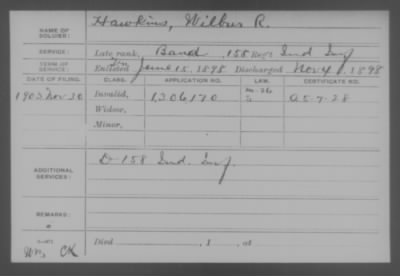 NAME OF SOLDIER: Hawkins, Wilbur R.
SERVICE: Late rank, Band, 158 Reg't Ind Inf
TERM OF SERVICE: Enlisted June 15, 1898 Discharged Nov 4, 1898
DATE OF FILING. CLASS. APPLICATION NO. LAW. CERTIFICATE NO.
1903 Nov 30 Invalid, 1,306,170 A5-7-28
Widow,
Minor,
ADDITIONAL SERVICES: D-158 Ind. Inf.
REMARKS:
Died , 1 , at